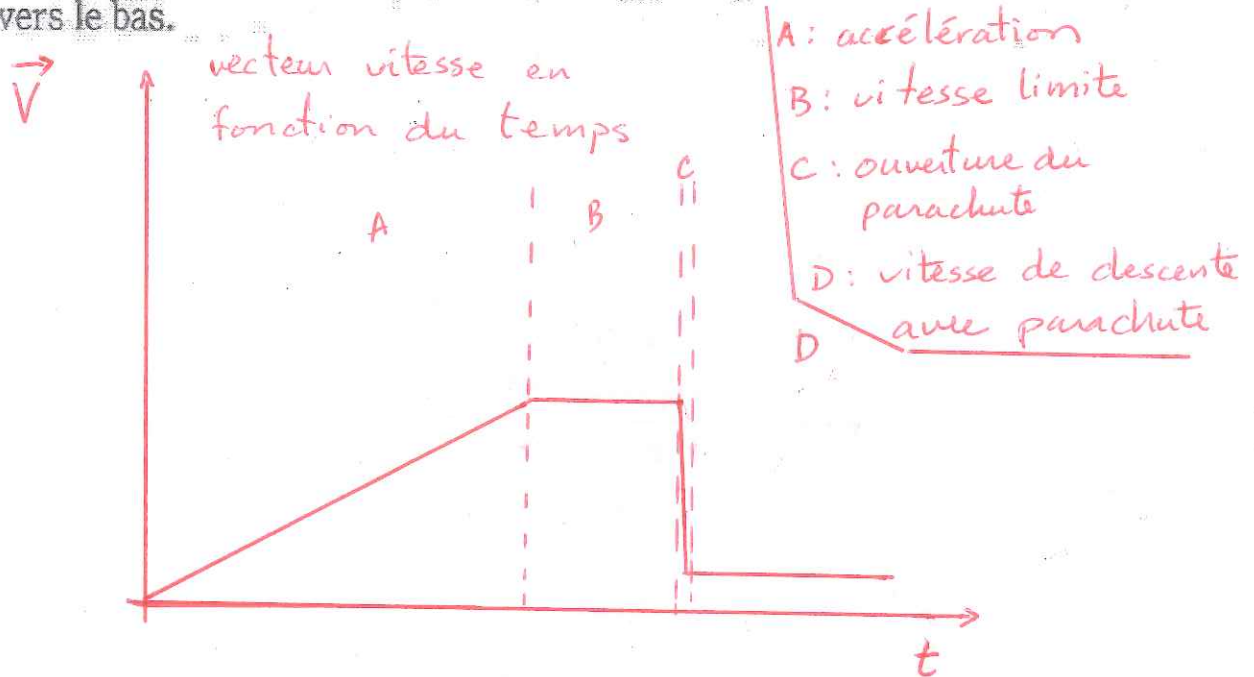 vers le bas.
V
vecteur vitesse en
fonction du temps
A
B
C
t
A : accélération
B : vitesse limite
C : ouverture du
parachute
D : vitesse de descente
avec parachute
D